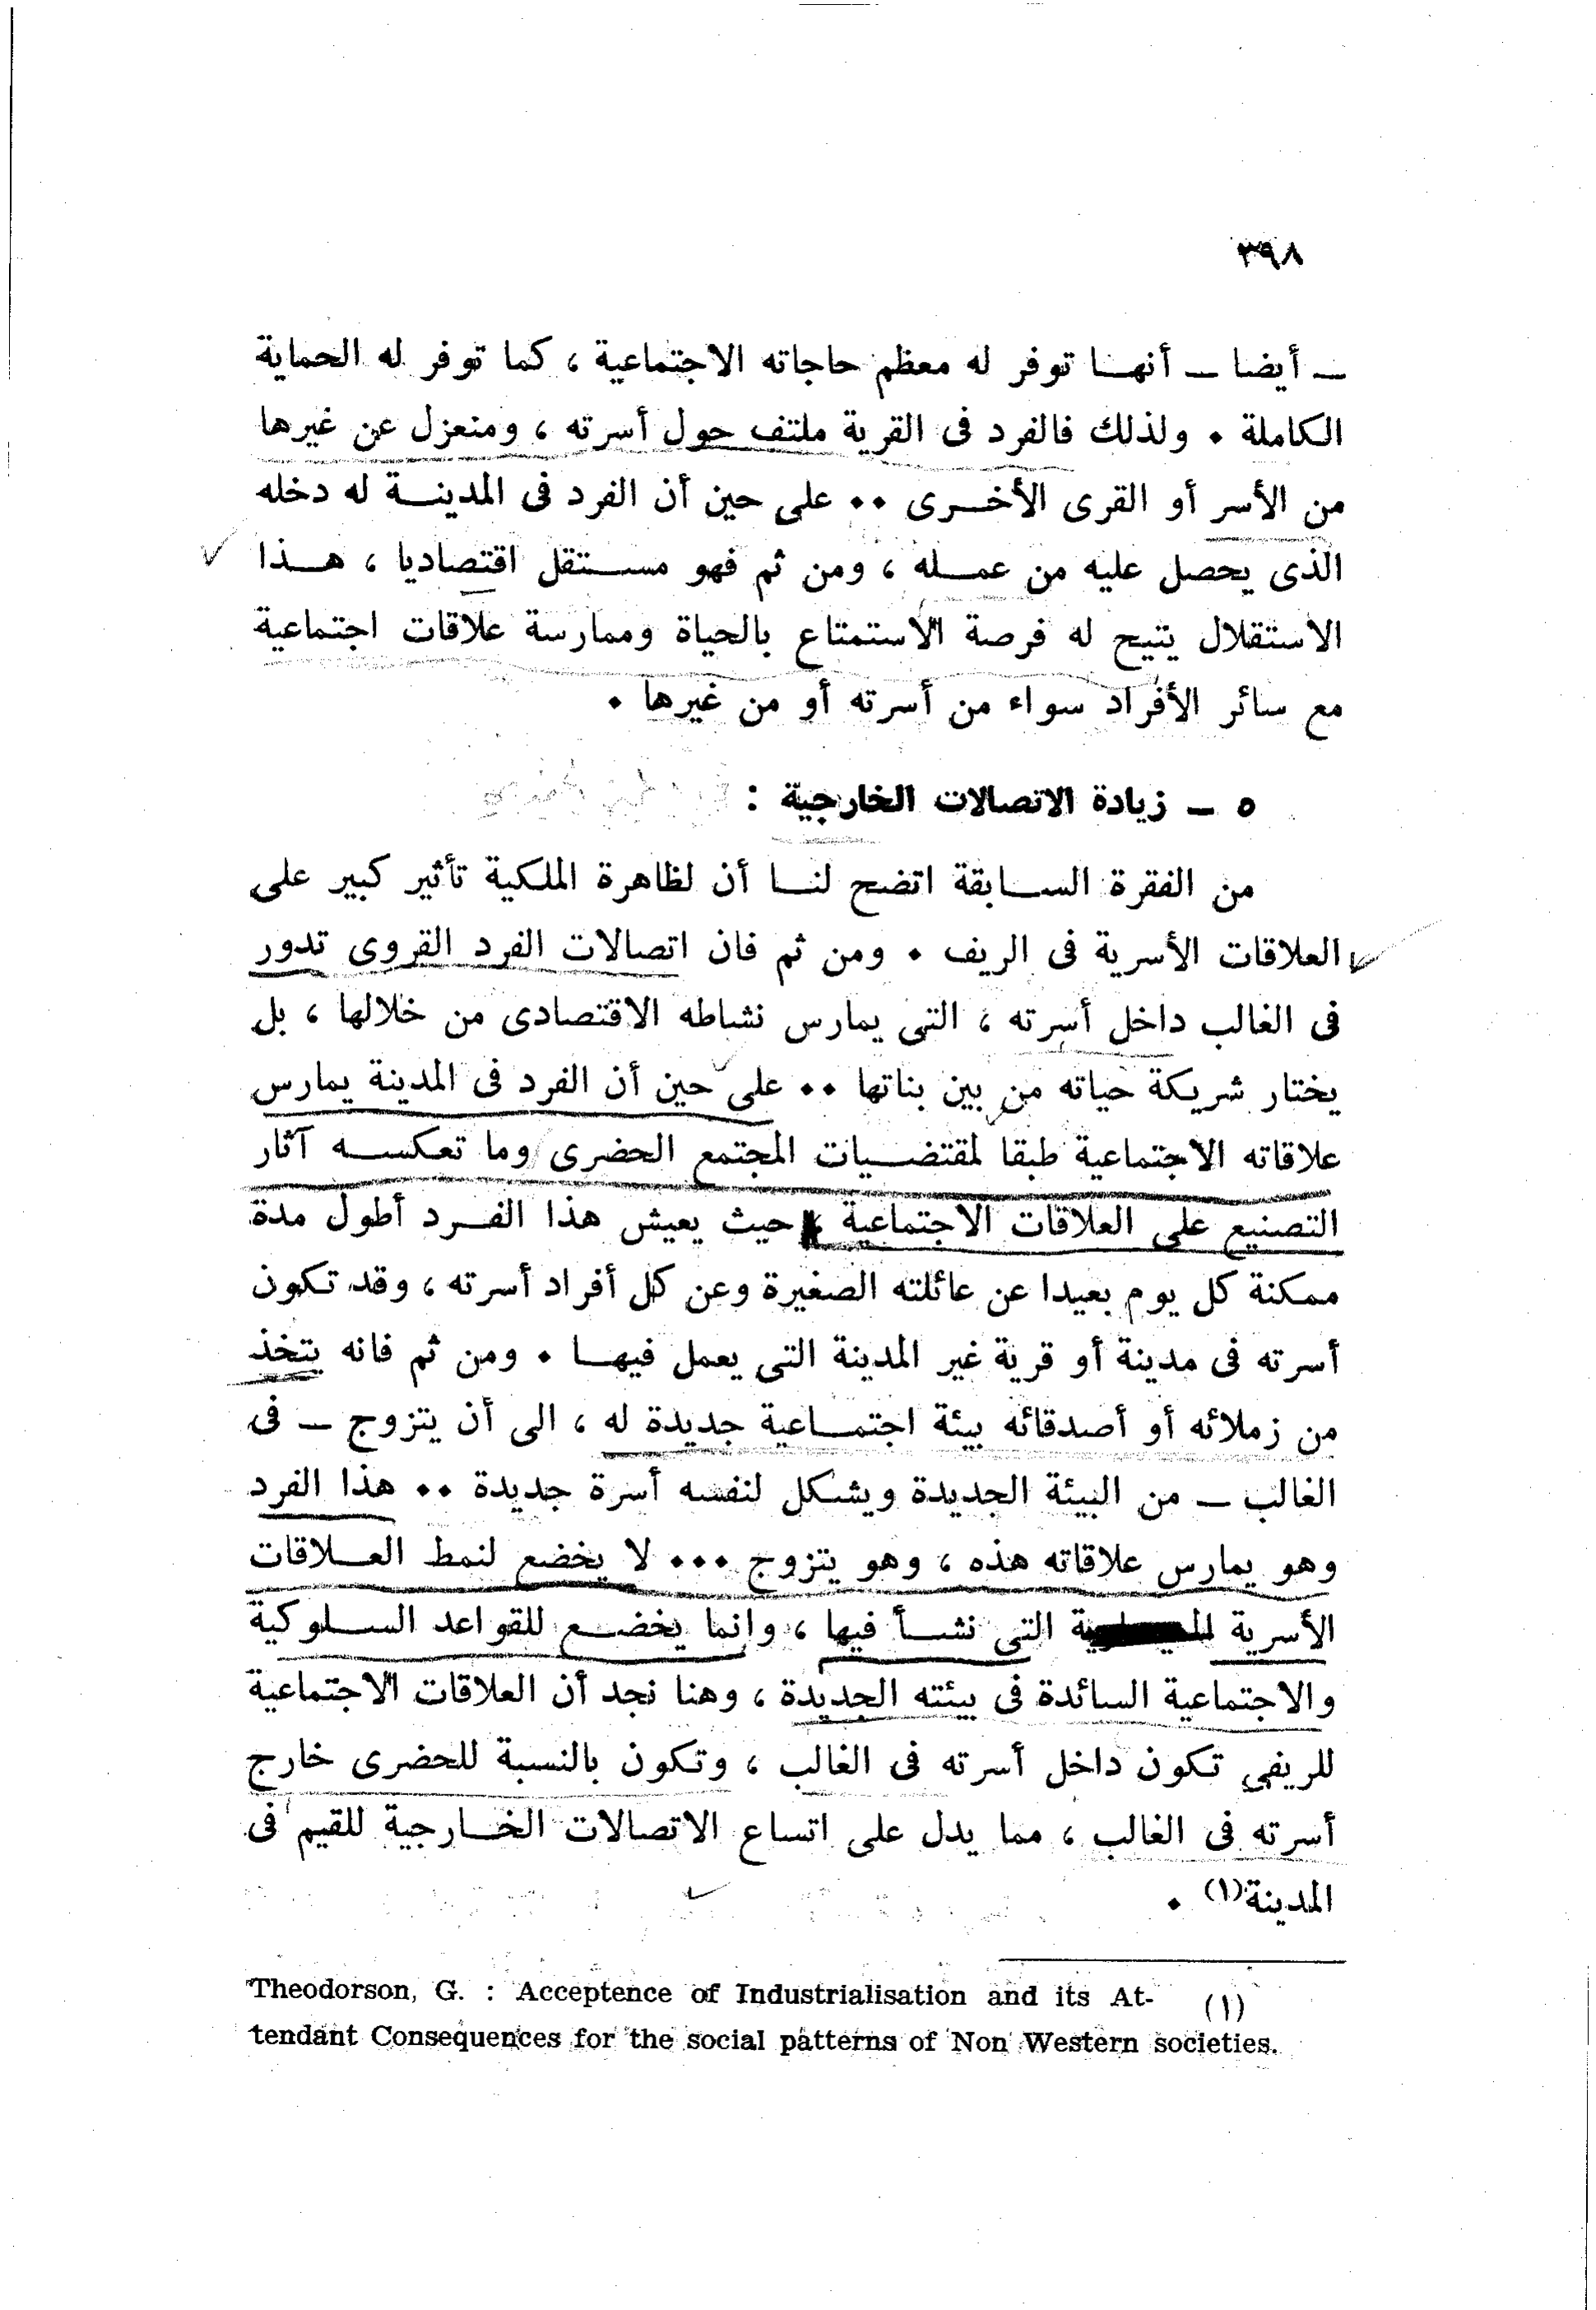 ٣٩٨
ـ أيضا ـ أنهـا توفر له معظم حاجاته الاجتماعية ، كما توفر له الحماية
الكاملة ٠ ولذلك فالفرد فى القرية ملتف حول أسرته ، ومنعزل عن غيرها
من الأسر أو القرى الأخـرى ٠٠ على حين أن الفرد فى المدينـة له دخله
الذى يحصل عليه من عمـله ، ومن ثم فهو مسـتقل اقتصاديا ، هـذا
الاستقلال يتيح له فرصة الاستمتاع بالحياة وممارسة علاقات اجتماعية
مع سائر الأفراد سواء من أسرته أو من غيرها ٠
٥ ـ زيادة الاتصالات الخارجية :
من الفقرة السـابقة اتضح لنـا أن لظاهرة الملكية تأثير كبير على
العلاقات الأسرية فى الريف ٠ ومن ثم فان اتصالات الفرد القروى تدور
فى الغالب داخل أسرته ، التى يمارس نشاطه الاقتصادى من خلالها ، بل
يختار شريكة حياته من بين بناتها ٠٠ على حين أن الفرد فى المدينة يمارس
علاقاته الاجتماعية طبقا لمقتضـيات المجتمع الحضرى وما تعكسـه آثار
التصنيع على العلاقات الاجتماعية ، حيث يعيش هذا الفـرد أطول مدة
ممكنة كل يوم بعيدا عن عائلته الصغيرة وعن كل أفراد أسرته ، وقد تكون
أسرته فى مدينة أو قرية غير المدينة التى يعمل فيهـا ٠ ومن ثم فانه يتخذ
من زملائه أو أصدقائه بيئة اجتمـاعية جديدة له ، الى أن يتزوج ـ فى
الغالب ـ من البيئة الجديدة ويشكل لنفسه أسرة جديدة ٠٠ هذا الفرد
وهو يمارس علاقاته هذه ، وهو يتزوج ٠٠٠ لا يخضع لنمط العـلاقات
الأسرية التى نشـأ فيها ، وانما يخضـع للقواعد السـلوكية
والاجتماعية السائدة فى بيئته الجديدة ، وهنا نجد أن العلاقات الاجتماعية
للريفى تكون داخل أسرته فى الغالب ، وتكون بالنسبة للحضرى خارج
أسرته فى الغالب ، مما يدل على اتساع الاتصالات الخـارجية للقيم فى
المدينة(١) ٠
(١) Theodorson, G. : Acceptence of Industrialisation and its At-
tendant Consequences for the social patterns of Non Western societies.